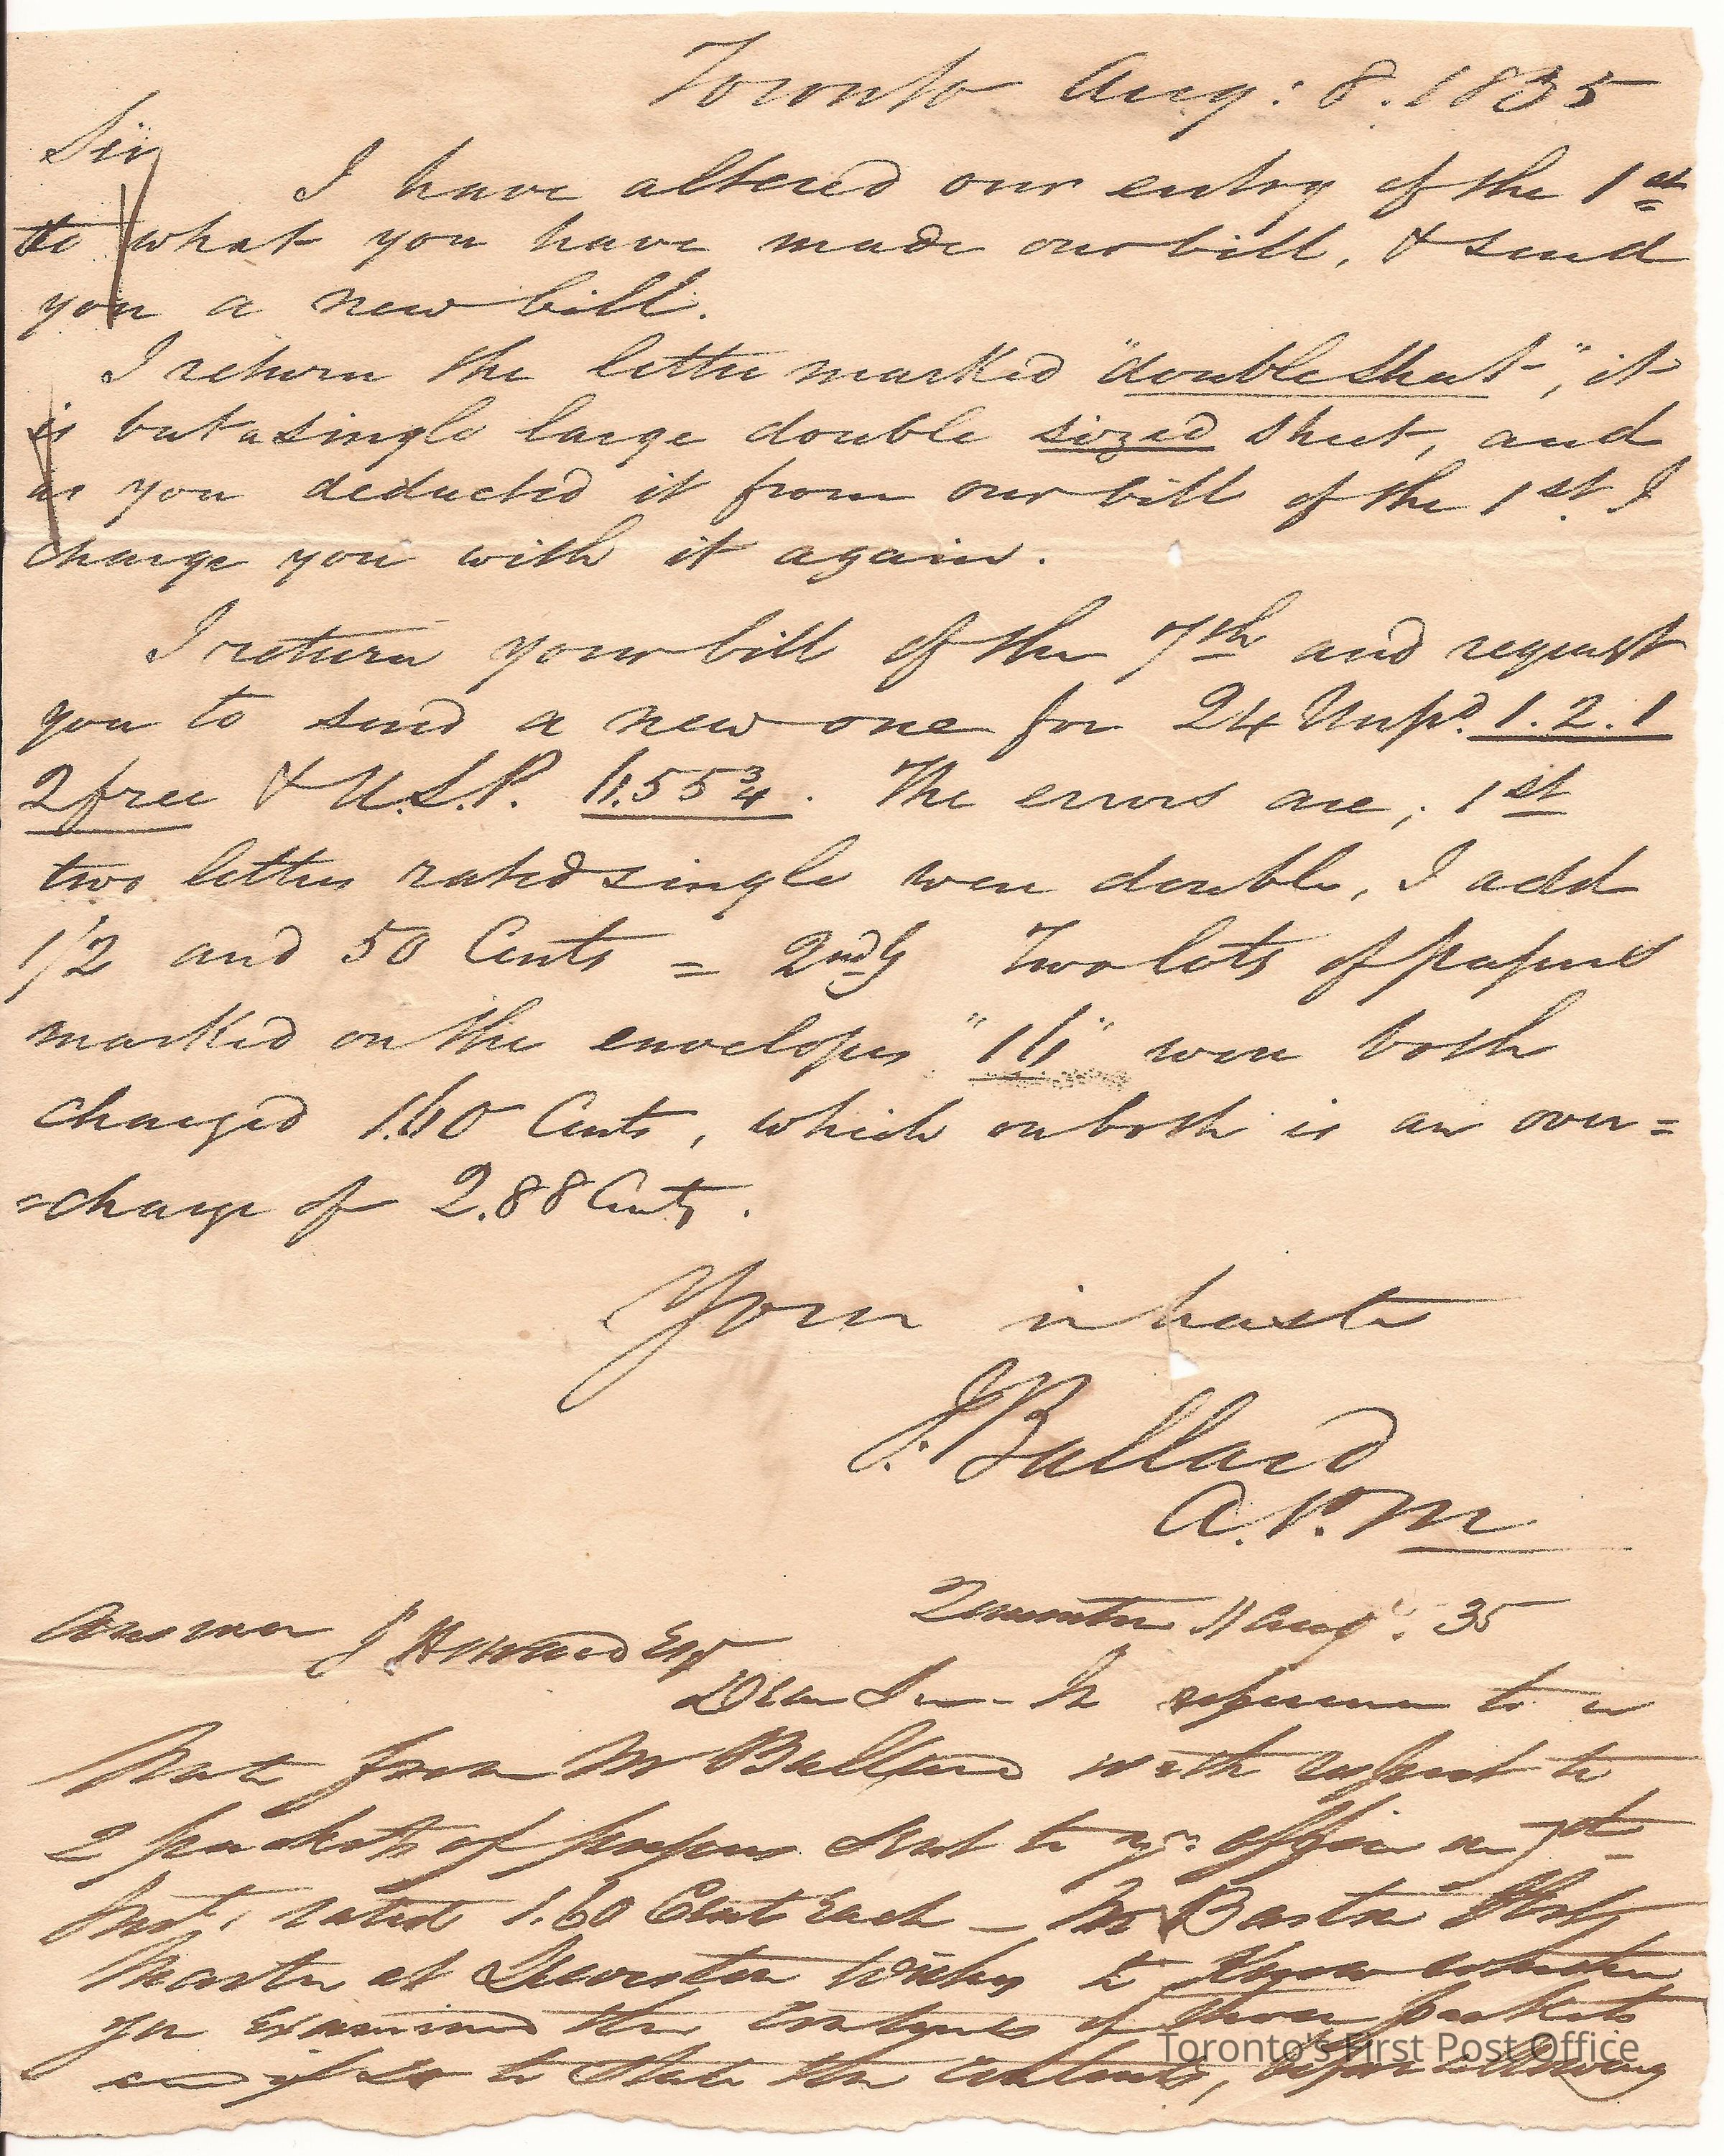 Toronto Aug: 8. 1835
Sir
I have altered our entry of the 1st
to what you have made our bill, & send
you a new bill.
I return the letter marked "double sheet", it
is but a single large double sized sheet, and
as you deducted it from our bill of the 1st I
charge you with it again.
I return your bill of the 7th and request
you to send a new one for 24 Unpd. 1.2.1
2 free & U.S.P. 11.55¾. The errors are, 1st
two letters rated single were double, I add
1/2 and 50 Cents = 2ndly Two lots of papers
marked on the envelopes were both
charged 1.60 Cents, which on both is an over=
=charge of 2.88 Cents.
Yours in haste
J. Ballard
A.P.M
Queenston 11 Augt. 35
Answer J Howard Esqr
Dear Sir - In reference to a
Note from Mr Ballard with respect to
2 packets of papers sent to yr. office on 7th
Inst. rated 1.60 Cents Each - Post
Master at Queenston wishes to know whether
you examined the of those packets
and if so to State the contents, before allowing
Toronto's First Post Office